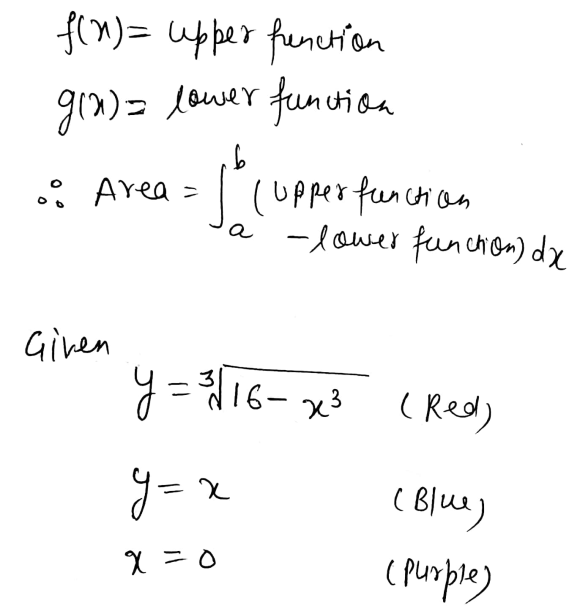 f(x) = upper function
g(x) = lower function
∴ Area = ∫_a^b (upper function
- lower function) dx
Given
y = ∛(16 - x³) (Red)
y = x (Blue)
x = 0 (Purple)